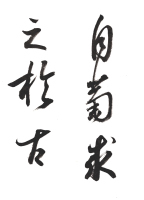 自蔔求
之於古